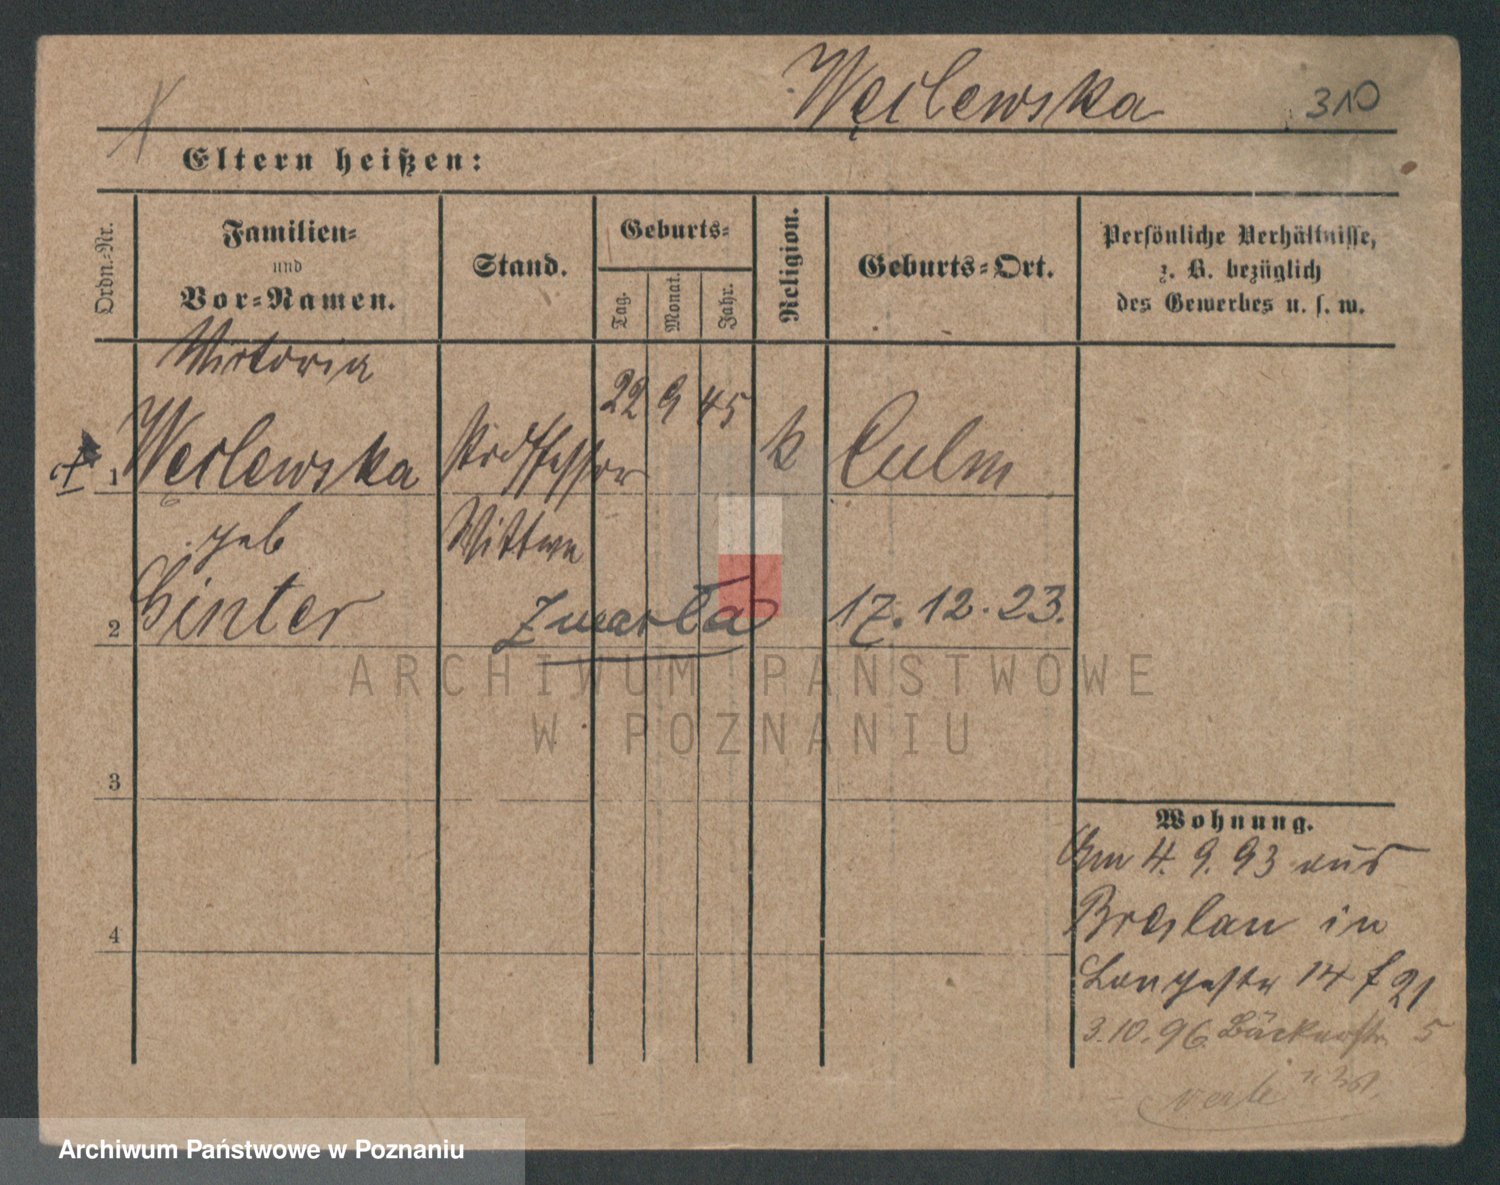 Węclewska 310
Eltern heißen:
Ordn.-Nr.
Familien-
und
Vor-Namen.
Stand.
Geburts-
Tag.
Monat.
Jahr.
Religion.
Geburts-Ort.
Persönliche Verhältnisse,
z. B. bezüglich
des Gewerbes u. s. w.
Victoria
1 Węclewska
Professor
22 9 45
k
Culm
geb
Wittwe
2 Ginter
Zmarła 17.12.23.
3
4
Wohnung.
Am 4.9.93 aus
Breslau in
Langestr 14 f 21
3.10.96 Bäckerstr 5
ARCHIWUM PAŃSTWOWE
W POZNANIU
Archiwum Państwowe w Poznaniu